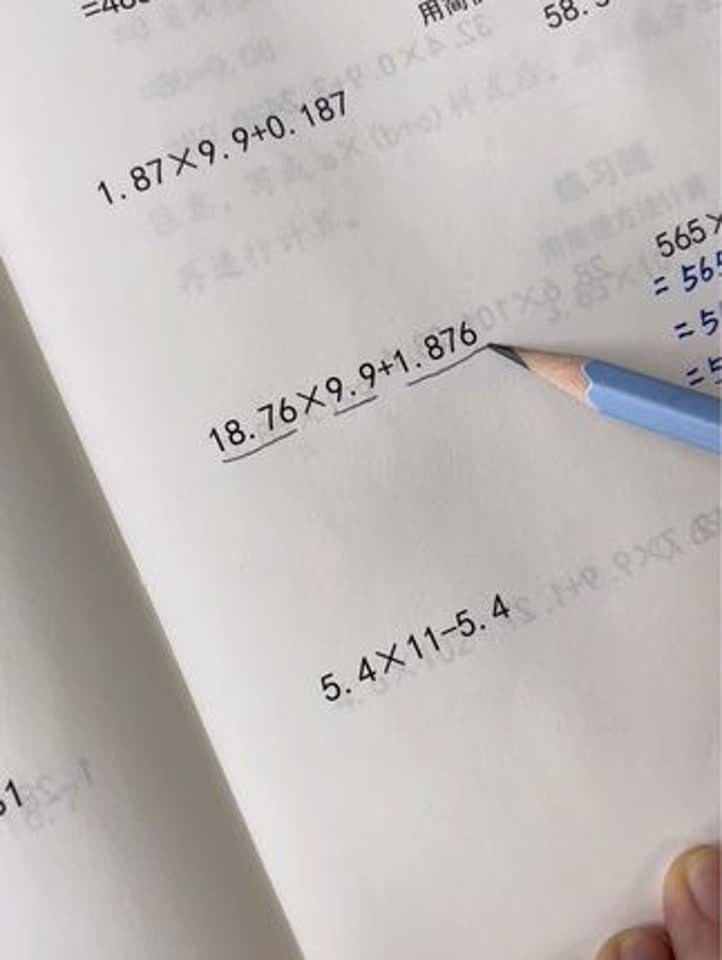 用简
58.
1.87×9.9+0.187
565×
=565
=5
=5
18.76×9.9+1.876
5.4×11-5.4